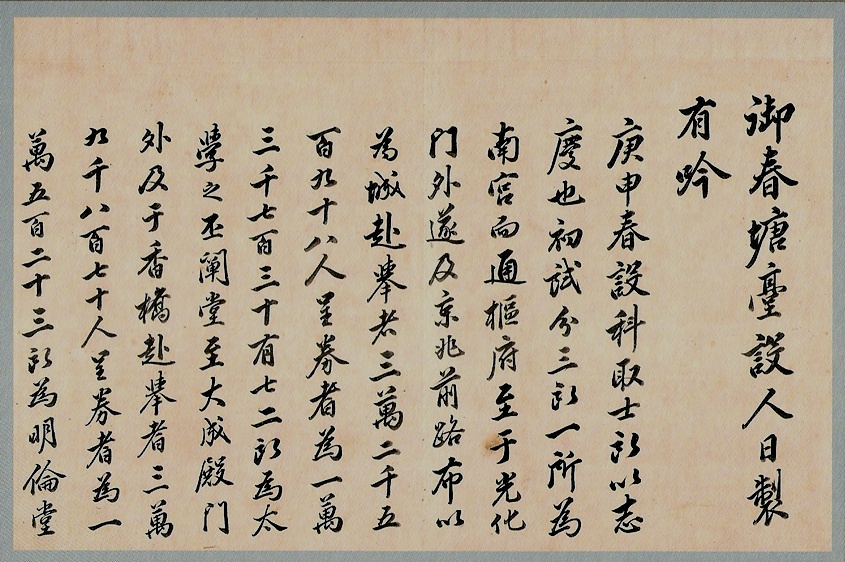 御春塘臺設人日製
有吟
庚申春設科取士所以志
慶也初試分三所一所為
南宮而通樞府至于光化
門外遂及京兆前路布以
為城赴擧者三萬二千五
百九十八人呈券者為一萬
三千七百三十有七二所為太
學之丕闡堂至大成殿門
外及于香橋赴擧者三萬
九千八百七十人呈券者為一
萬五百二十三所為明倫堂